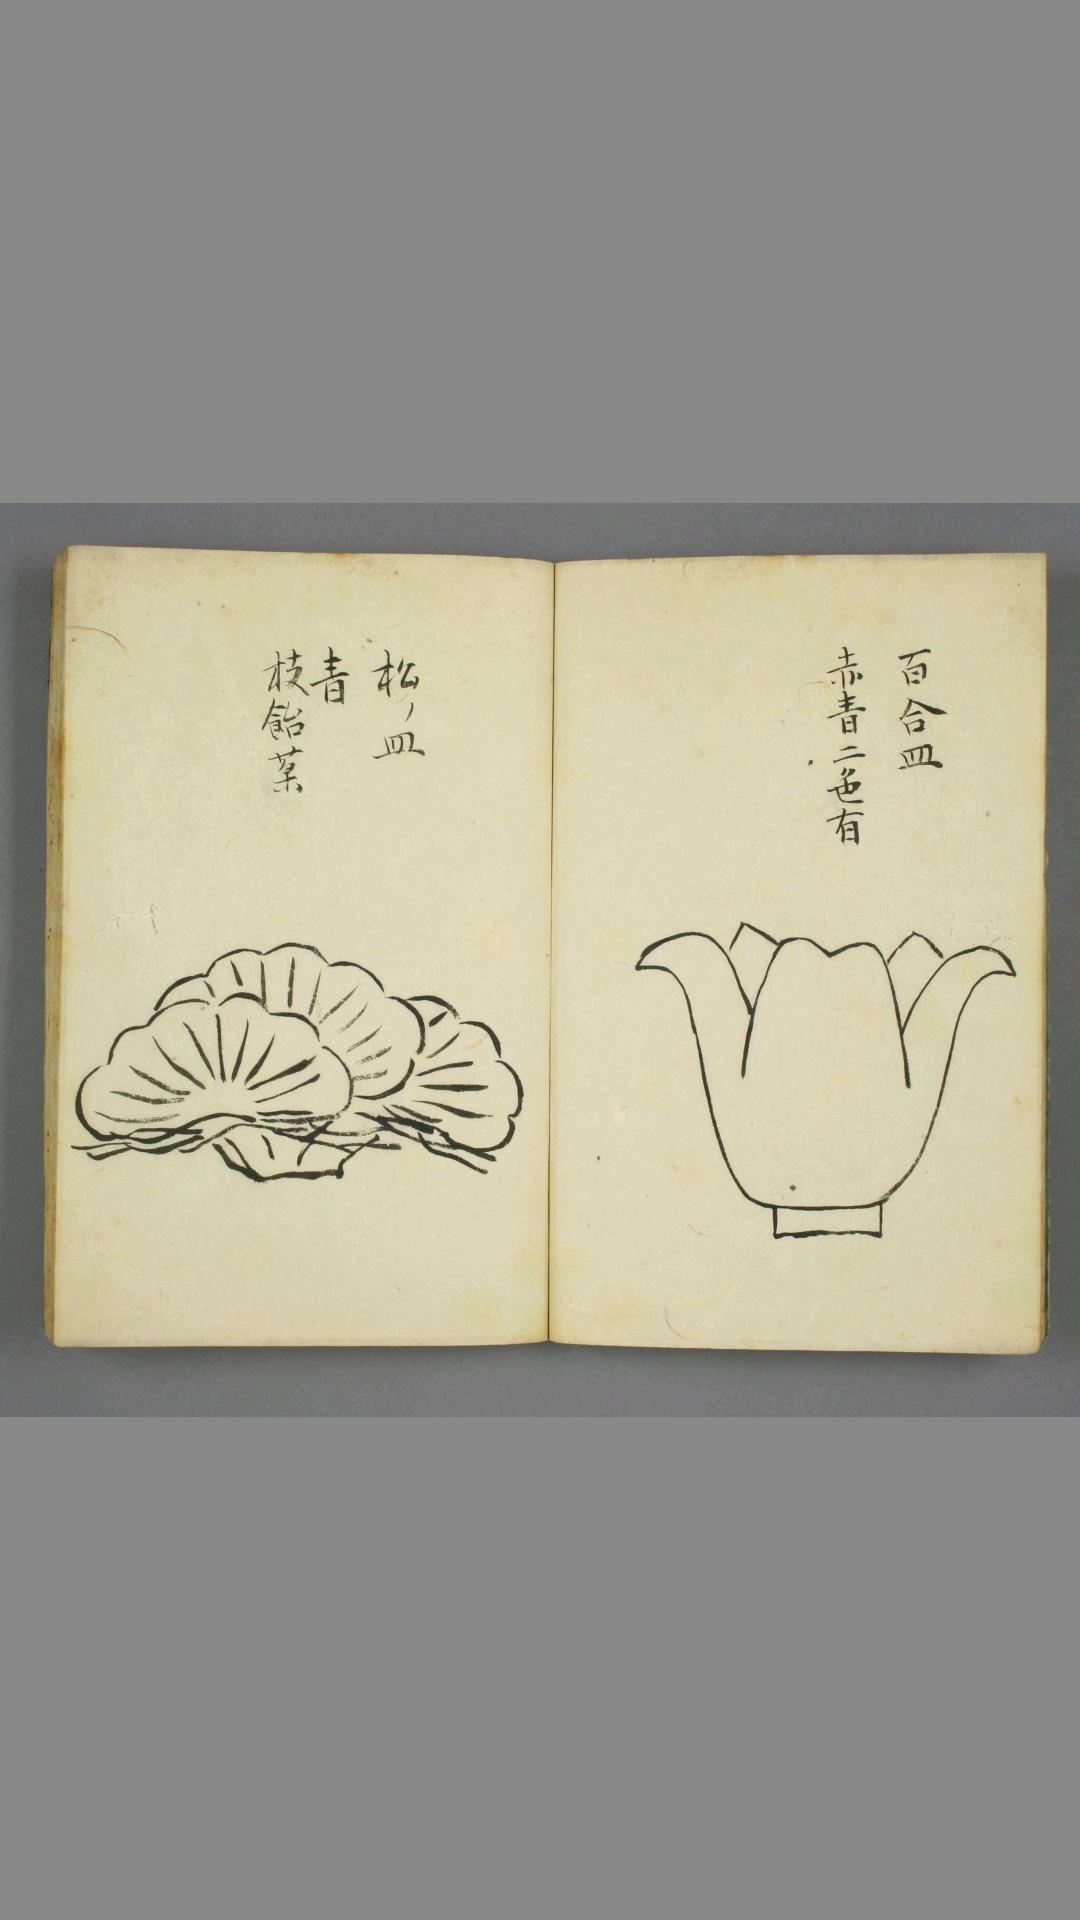 百合皿
赤青二色有
松ノ皿
青
枝飴薬